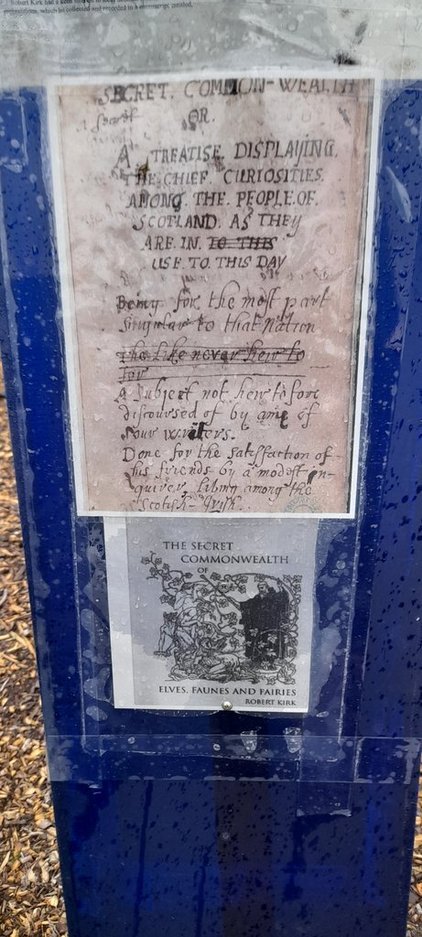 Robert Kirk had a keen
which he collected and recorded in a manuscript entitled,
SECRET. COMMON-WEALTH
OR.
A. TREATISE DISPLAYING.
THE CHIEF. CURIOSITIES.
AMONG. THE. PEOPLE. OF.
SCOTLAND. AS THEY
ARE. IN. TO THIS
USE. TO. THIS DAY
Being for the most part
singular to that Nation
The like never heir to
for
A Subject not heirtofore
discoursed of by anie of
our writers.
Done for the satisfaction of
his friends by a modest en-
quirer, living among the
Scotish-Irish.
THE SECRET
COMMONWEALTH
OF
ELVES, FAUNES AND FAIRIES
ROBERT KIRK